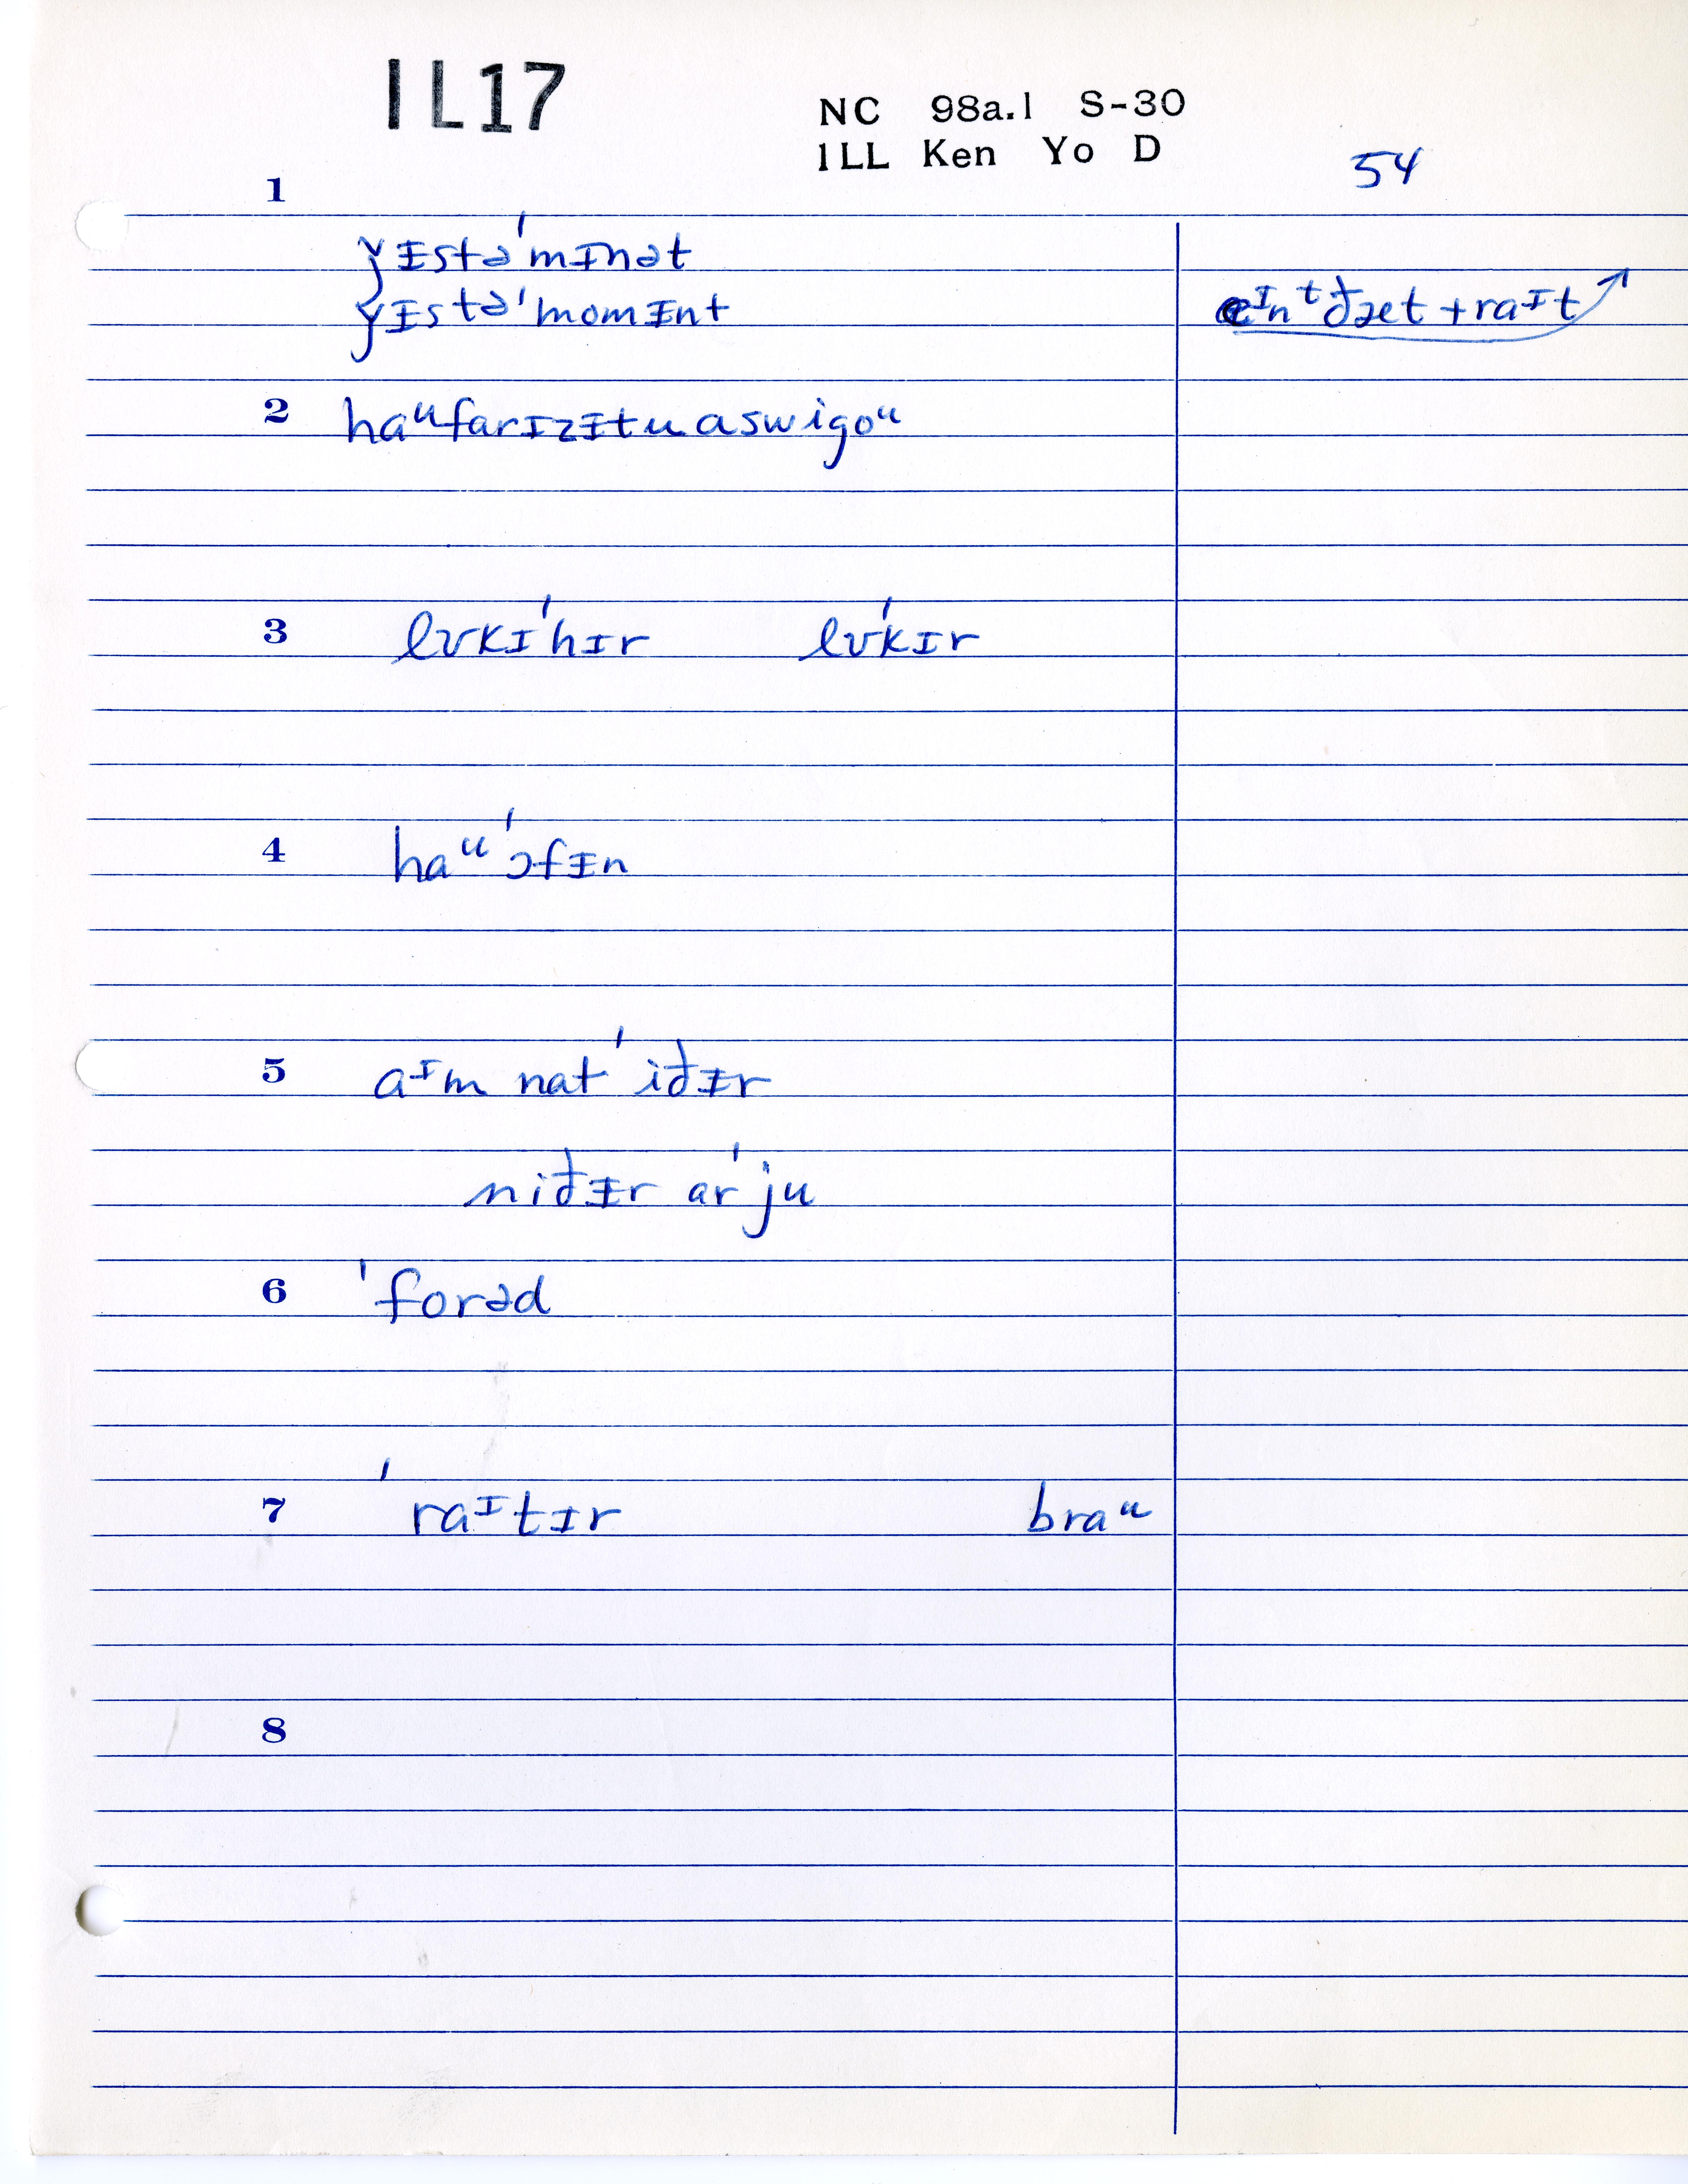 IL17
NC 98a.1 S-30
ILL Ken Yo D
54
1
ǰɪstə'mɪnət
ǰɪstə'momɪnt
eɪnᵗðæt+raɪt↗
2 haᵘfarɪzɪtuaswigoᵘ
3 lʊkɪ'hɪr lʊ'kɪr
4 haᵘ'ɔfɪn
5 aᴵm nat'iðɪr
niðɪr ar'ju
6 'forəd
7 'raᴵtɪr braᵘ
8